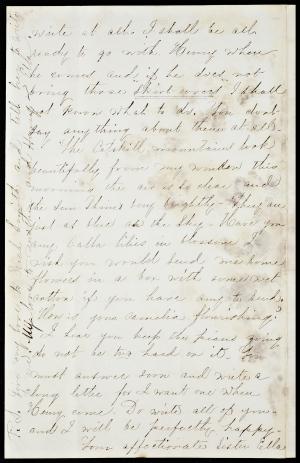 write at all. I shall be all
ready to go with Henry when
he comes and if he does not
bring those "shirt wires" I shall
not know what to do. You dont
say anything about them at all.
The Catskill mountains look
beautifully from my window this
morning the air is so clear and
the sun shines very brightly. They are
just as blue as the sky. Have you
any Calla lilies in blossom. I
wish you would send me some
flowers in a box with some wet
cotton if you have any to send.
How is your camelia flourishing?
I hope you keep the piano going
do not be too hard on it. You
must answer soon and write a
long letter for I want one when
Henry comes. Do write all of you
and I will be perfectly happy.
Your affectionate Sister Ella
P.S. Give my love to
and tell